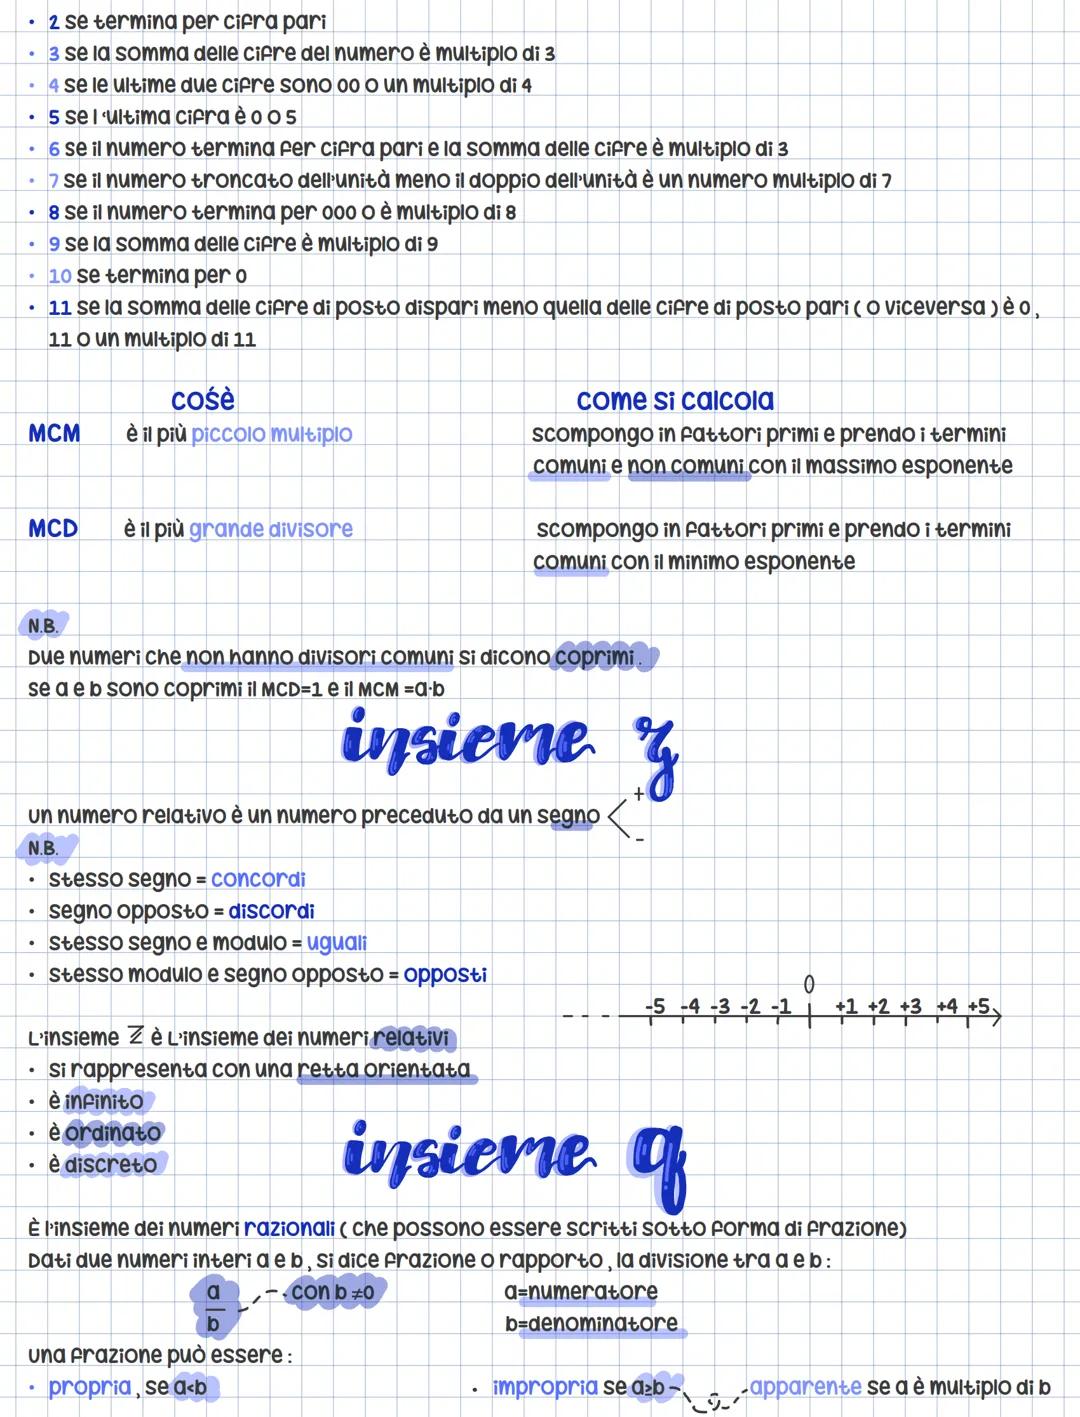 • 2 se termina per cifra pari
• 3 se la somma delle cifre del numero è multiplo di 3
• 4 se le ultime due cifre sono 00 o un multiplo di 4
• 5 se l'ultima cifra è 0 o 5
• 6 se il numero termina fer cifra pari e la somma delle cifre è multiplo di 3
• 7 se il numero troncato dell'unità meno il doppio dell'unità è un numero multiplo di 7
• 8 se il numero termina per 000 o è multiplo di 8
• 9 se la somma delle cifre è multiplo di 9
• 10 se termina per 0
• 11 se la somma delle cifre di posto dispari meno quella delle cifre di posto pari ( o viceversa ) è 0,
11 o un multiplo di 11
cośè come si calcola
MCM è il più piccolo multiplo scompongo in fattori primi e prendo i termini
comuni e non comuni con il massimo esponente
MCD è il più grande divisore scompongo in fattori primi e prendo i termini
comuni con il minimo esponente
N.B.
Due numeri che non hanno divisori comuni si dicono coprimi.
se a e b sono coprimi il MCD=1 e il MCM =a·b
insieme z
un numero relativo è un numero preceduto da un segno < + -
N.B.
• stesso segno = concordi
• segno opposto = discordi
• stesso segno e modulo = uguali
• stesso modulo e segno opposto = opposti
0
-5 -4 -3 -2 -1 +1 +2 +3 +4 +5
L'insieme ℤ è L'insieme dei numeri relativi
• si rappresenta con una retta orientata
• è infinito
• è ordinato
• è discreto
insieme q
È l'insieme dei numeri razionali ( che possono essere scritti sotto forma di frazione)
Dati due numeri interi a e b, si dice frazione o rapporto, la divisione tra a e b:
a con b ≠0 a=numeratore
b b=denominatore
una frazione può essere:
• propria, se a<b • impropria se a≥b apparente se a è multiplo di b